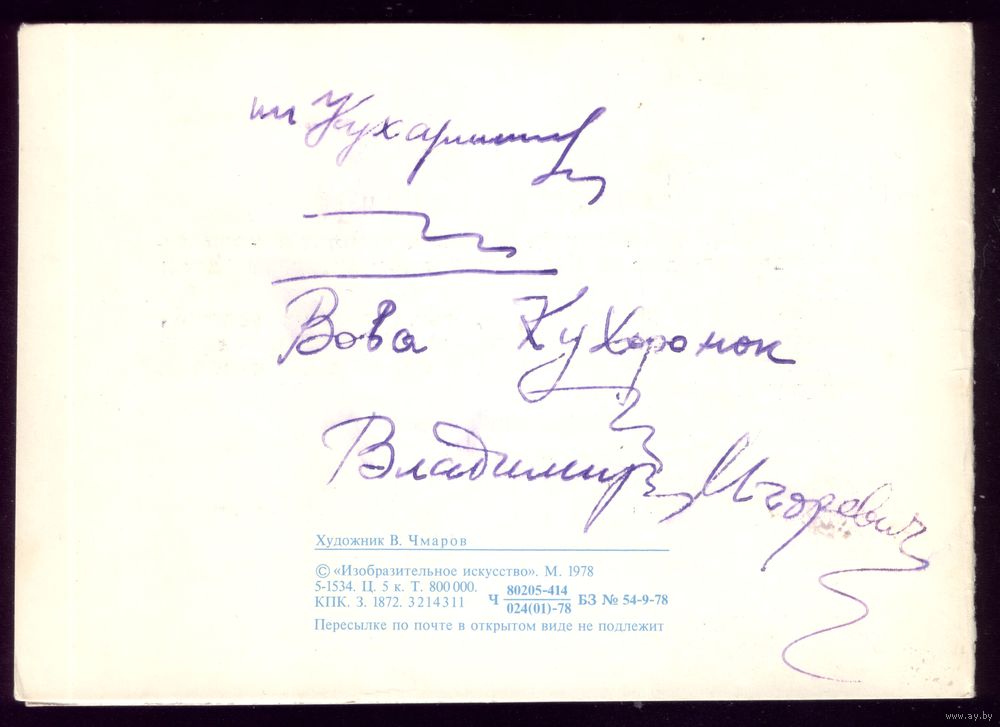 Вова Кухаронок
Владимир Игоревич
Художник В. Чмаров
© «Изобразительное искусство». М. 1978
5-1534. Ц. 5 к. Т. 800 000.
КПК. З. 1872. 3214311
Ч 80205-414 БЗ № 54-9-78
024(01)-78
Пересылке по почте в открытом виде не подлежит
www.ay.by